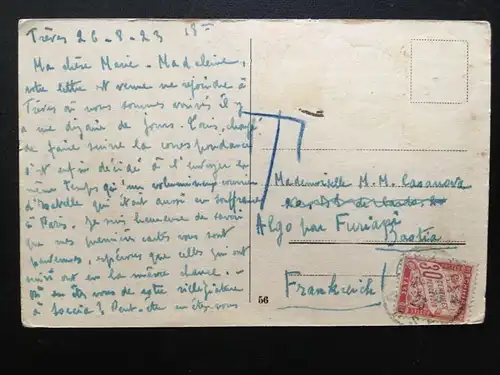 Trèves 26-8-23 18
Ma chère Marie-Madeleine,
votre lettre est venue me rejoindre à
Trèves où nous sommes arrivés il y
a une dizaine de jours. Tous, chargé
de faire suivre la correspondance
s'est enfin décidé à l'envoyer en
même temps qu'un volumineux courrier
d'Isabelle qui était aussi en souffrance
à Paris. Je suis heureuse de savoir
que mes premières cartes vous sont
parvenues, espérons que celles qui ont
suivi ont eu la même chance. -
Où en êtes vous de votre villégiature
à Soccia? Peut-être en êtes-vous
T
Mademoiselle M. M. Casanova
Algo par Furiani
Bastia
Frankreich!
56
20